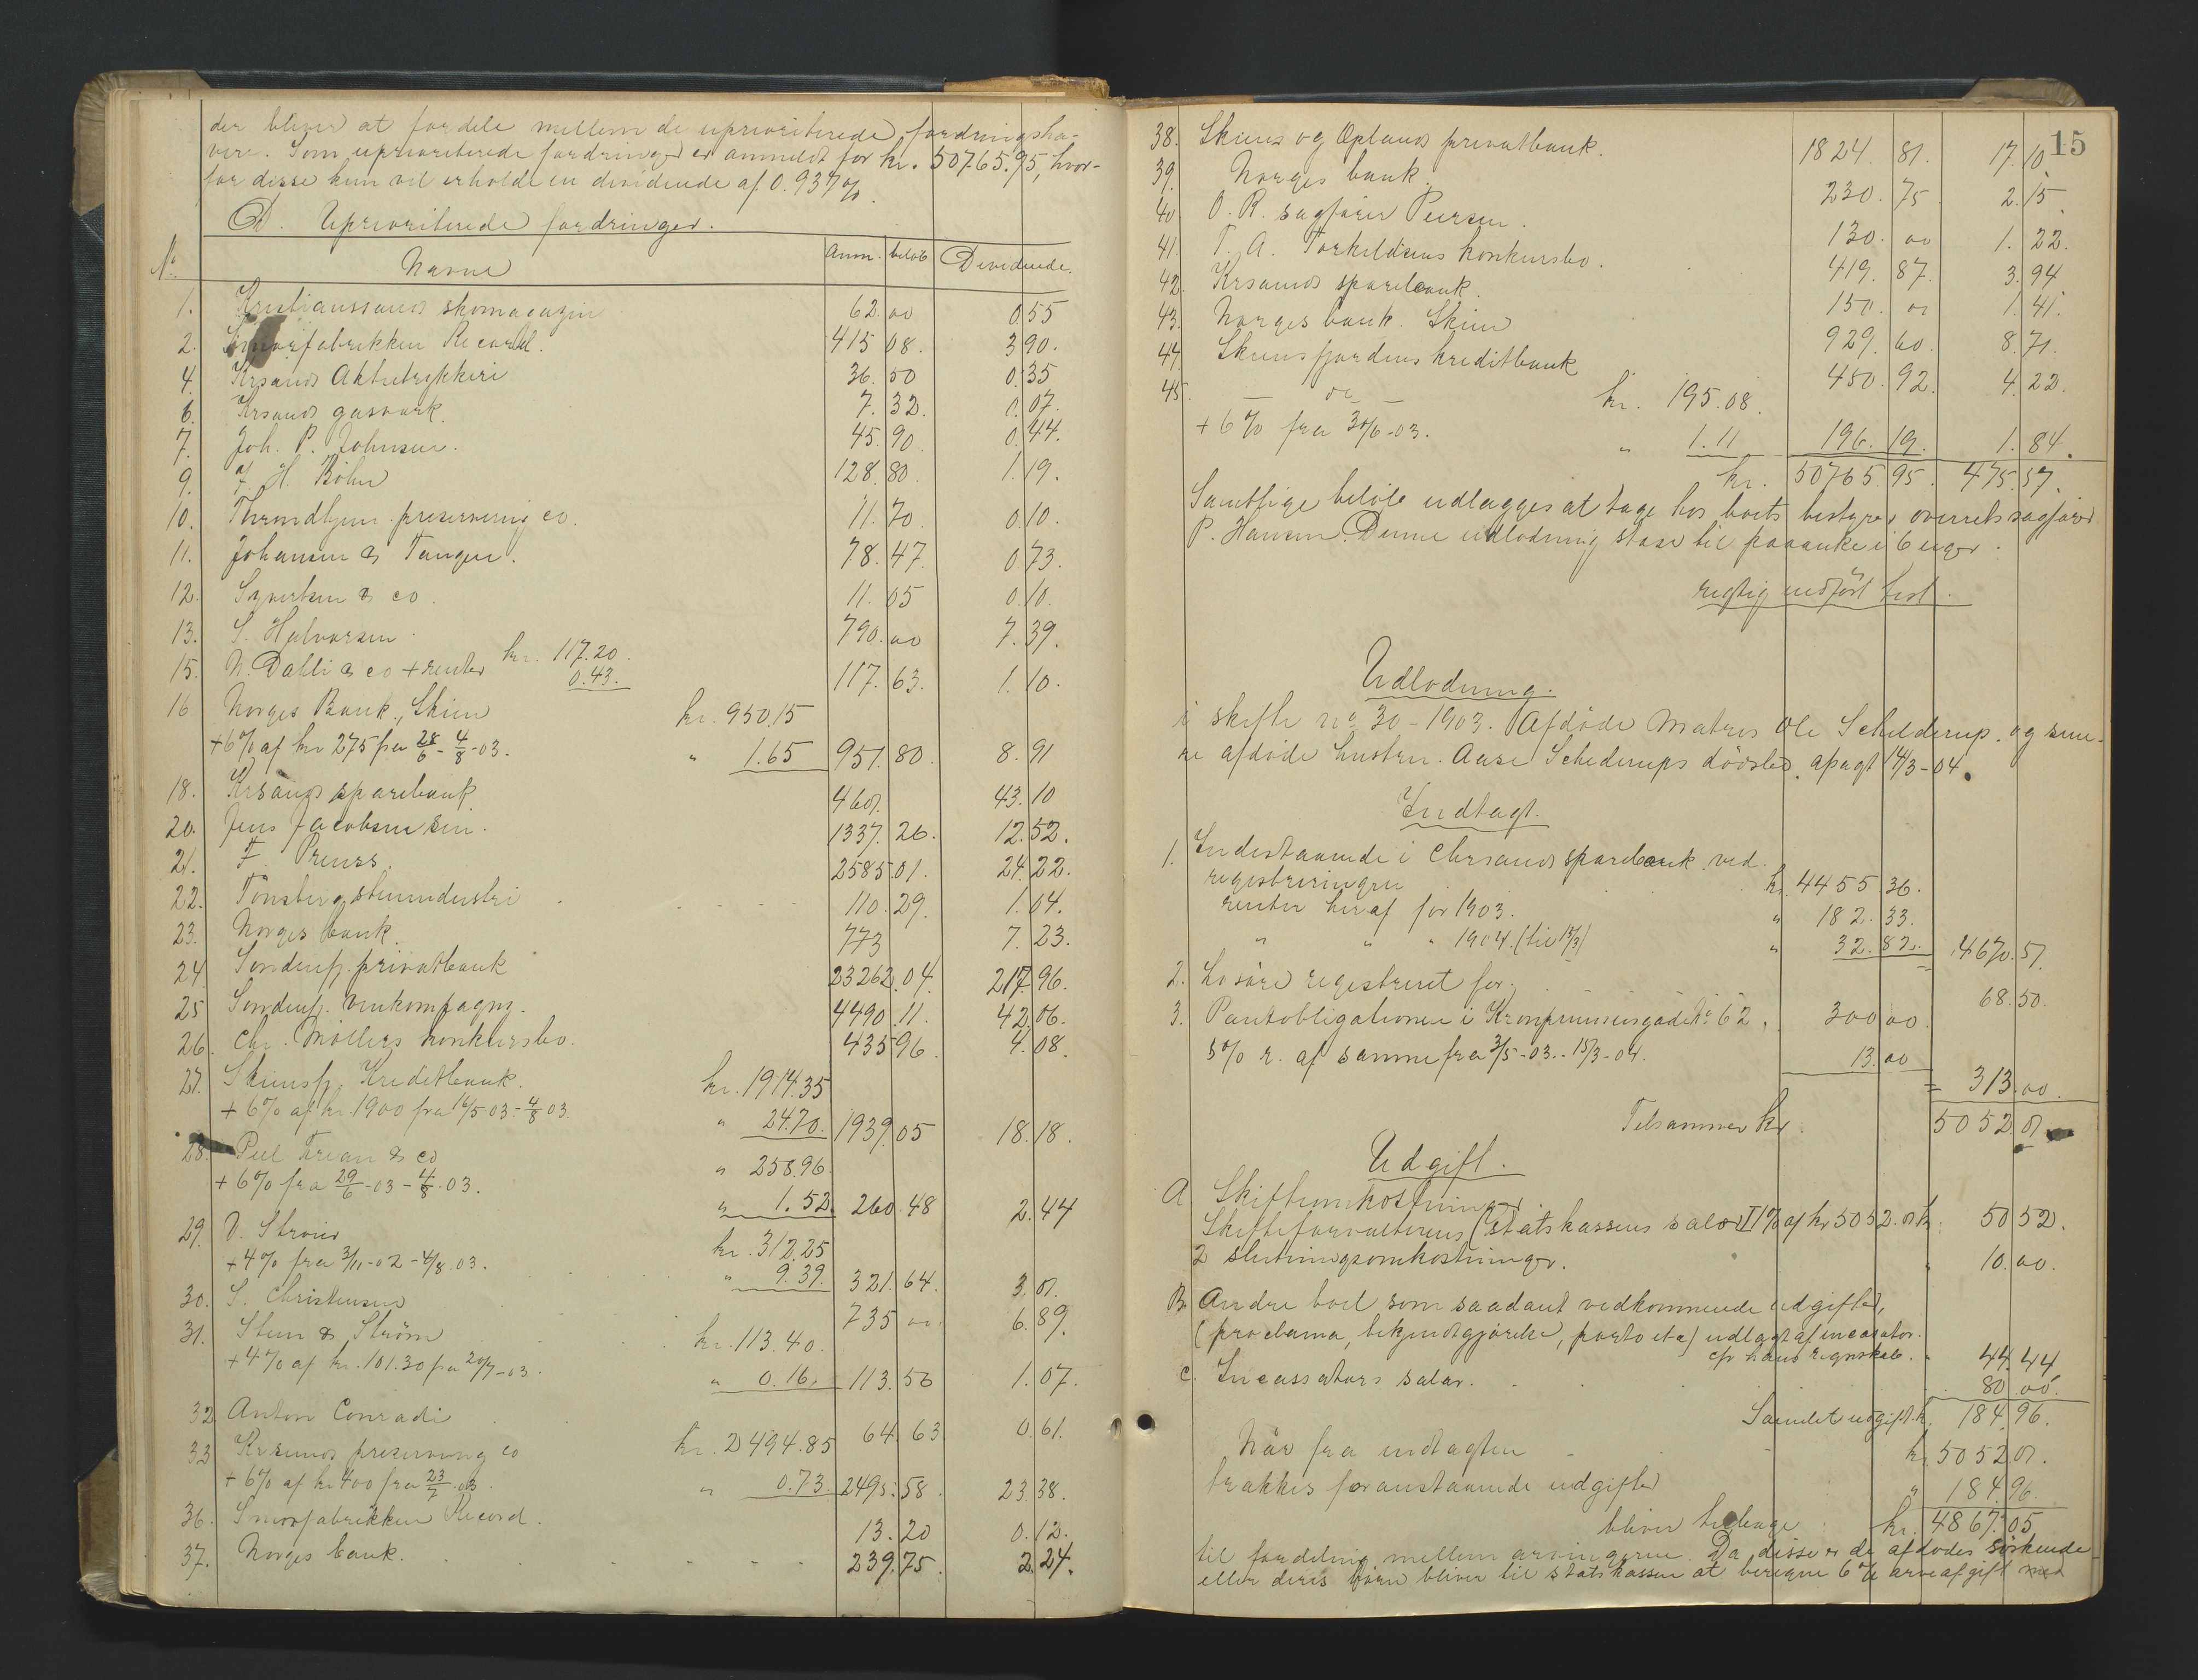 der bliver at fordele mellem de uprioriterede fordringsha-
vere. Som uprioriterede fordringer er anmeldt for kr. 50765.95, hvor-
for disse kun vil erholde en dividende af 0.937%.
D. Uprioriterede fordringer.
No Navne Anm. beløb Dividende.
1. Kristianssands skomagazin 62.00 0.55
2. Smørfabrikken Record. 415 08. 3 90.
4. Krsands Aktietrykkeri 36.50 0.35
6. Krsands gasværk. 7.32. 0.07.
7. Joh. P. Johnsen. 45.90 0.44.
9. J. H. Böhn 128.80. 1.19.
10. Throndhjem preserving co. 11.70. 0.10.
11. Johansen & Tangen. 78.47. 0.73.
12. Syvertsen & co. 11.05 0.10.
13. S. Halvorsen. 790.00 7.39.
15. N. Dahli & co + renter kr. 117.20.
0.43. 117.63. 1.10.
16 Norges Bank, Skien kr. 950.15
+6% af kr 275 fra 28/6 - 4/8-03. " 1.65 951.80. 8.91
18. Krsands sparebank 4601. 43.10
20. Jens Jacobsen sen. 1337.26. 12.52.
21. F. Preuss. 2585.01. 24.22.
22. Tönsberg stenindustri 110.29. 1.04.
23. Norges bank. 773 7.23.
24 Søndenfj. privatbank 23262.04. 217.96.
25 Søndenfj. vinkompagny. 4490.11. 42.06.
26. Chr. Møllers konkursbo. 435 96. 4.08.
27. Skiensfj. Kreditbank. kr. 1914.35
+ 6% af kr. 1900 fra 16/5-03 - 4/8 03. " 24.70. 1939.05 18.18.
28. Peel Trean & co " 258.96.
+ 6% fra 29/6-03 - 4/8.03. " 1.52. 260.48 2.44
29. D. Strøier kr. 312.25
+4% fra 3/11-02 - 4/8.03. " 9.39. 321.64. 3.01.
30. S. Christensen 735 00. 6.89.
31. Steen & Strøm kr. 113.40.
+4% af kr. 101.30 fra 20/7-03. " 0.16. 113.56 1.07.
32. Anton Conradi 64.63 0.61.
33 Krsands preserving co kr. 2494.85
+ 6% af kr 400 fra 23/7.03. " 0.73. 2495.58. 23.38.
36. Smørfabrikken Record. 13.20 0.12.
37. Norges bank. 239.75. 2.24.
15
38. Skiens og Oplands privatbank. 1824 81. 17.10.
39. Norges bank. 230.75 2.15.
40. O. R. sagfører Peersen. 130.00 1.22.
41. T. A. Torkildsens konkursbo. 419.87. 3.94
42. Krsands sparebank. 150.00 1.41.
43. Norges bank. Skien 929.60. 8.71.
44. Skiensfjordens kreditbank 450.92. 4.22.
45. — do — kr. 195.08.
+6% fra 30/6-03. " 1.11 196.19. 1.84.
kr. 50765.95. 475.57.
Samtlige beløb udlægges at tage hos boets bestyrer overretssagfører
P. Hansen. Denne udlodning staar til paaanke i 6 uger.
rigtig indført test.
Udlodning.
i skifte no 30 - 1903. Afdøde Matros Ole Schelderup og sene-
re afdøde hustru Aase Schelderups dödsbo. afsagt 14/3-04.
Indtægt.
1. Indestaaende i Chrsands sparebank ved
registreringen kr. 4455.36.
renter heraf for 1903. " 182.33.
" " " 1904. (til 15/3) " 32.82. = 4670.51.
2. Løsøre registreret for. 68.50.
3. Pantobligationen i Kronprinsensgade No 62. 300 00.
5% r. af samme fra 3/5-03 - 15/3-04. 13.00 = 313.00.
Tilsammen kr. 5052 01
Udgift.
A Skifteomkostninger.
Skifteforvalterens (statskassens salær) 1% af kr 5052.01 kr. 50 52.
2 slutningsomkostninger. " 10.00.
B. Andre boet som saadant vedkommende udgifter,
(proclama, bekjendtgjørelse, porto etc) udlagt af incassator.
cfr hans regnskab. " 44.44
C. Incassators salær. 80 00.
Samlet udgift. kr. 184.96.
Når fra indtægten kr 5052.01.
trækkes foranstaaende udgifter " 184.96.
bliver tilbage kr. 4867.05
til fordeling mellem arvingerne. Da disse er de afdødes søskende
eller deres børn bliver til statskassen at beregne 6% arveafgift med